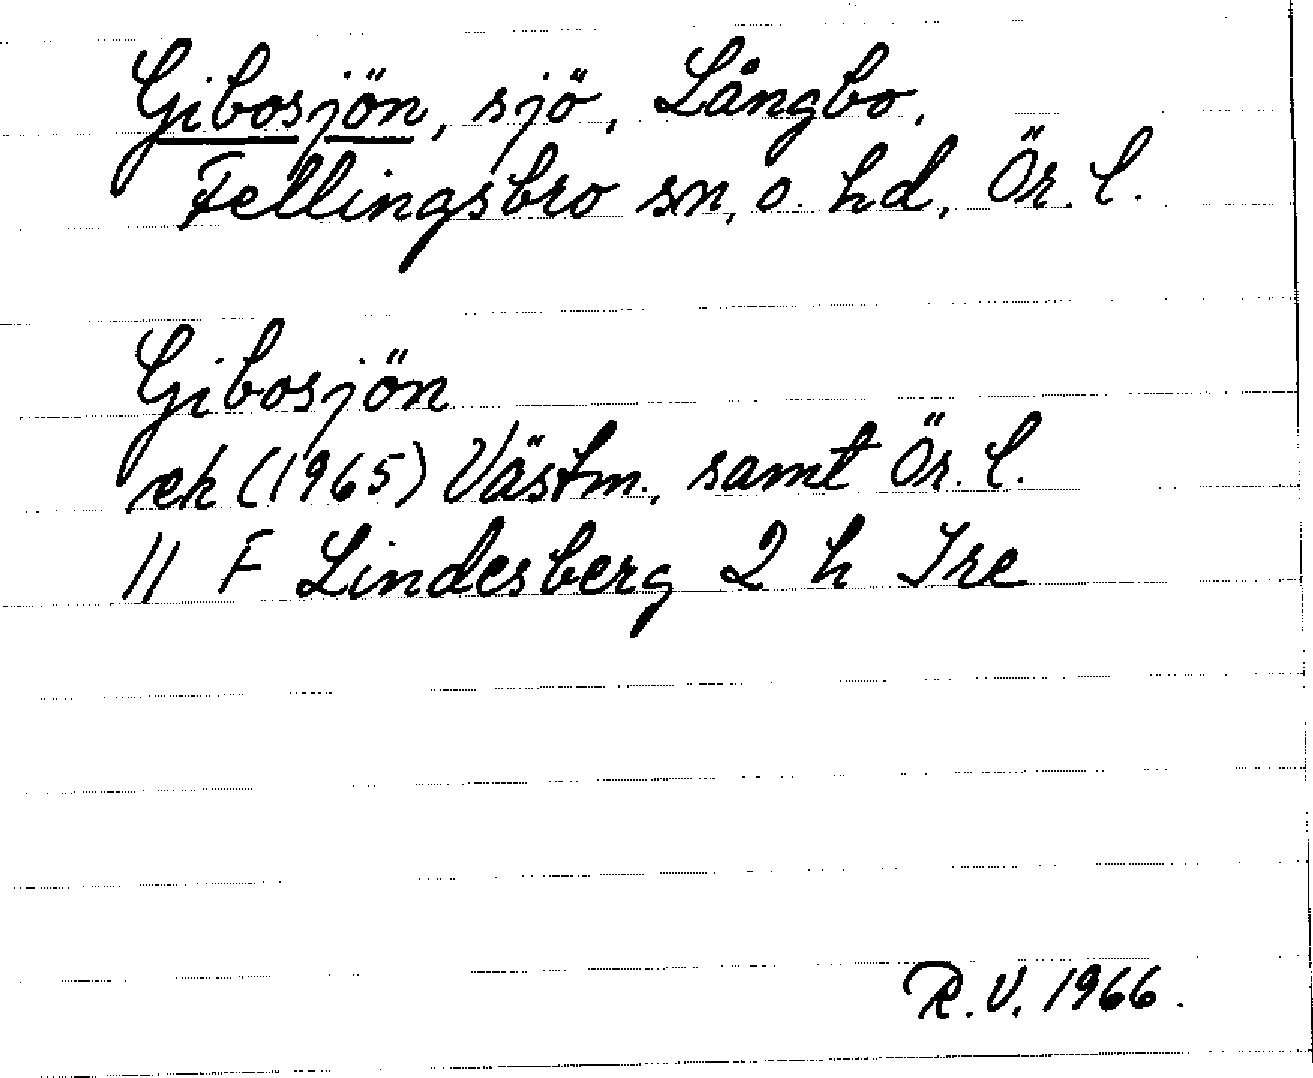 Gibosjön, sjö, Långbo,
Fellingsbro sn, o. hd, Ör. l.
Gibosjön
ek (1965) Västm., samt Ör. l.
11 F Lindesberg 2 h Tre
R.V. 1966.